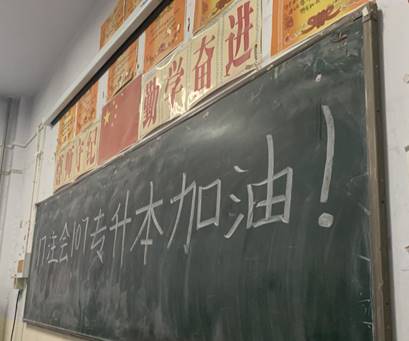 尊师守纪 勤学奋进
17注会107专升本加油!